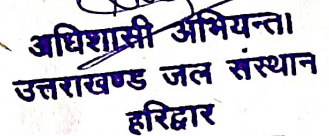 अधिशासी अभियन्ता
उत्तराखण्ड जल संस्थान
हरिद्वार